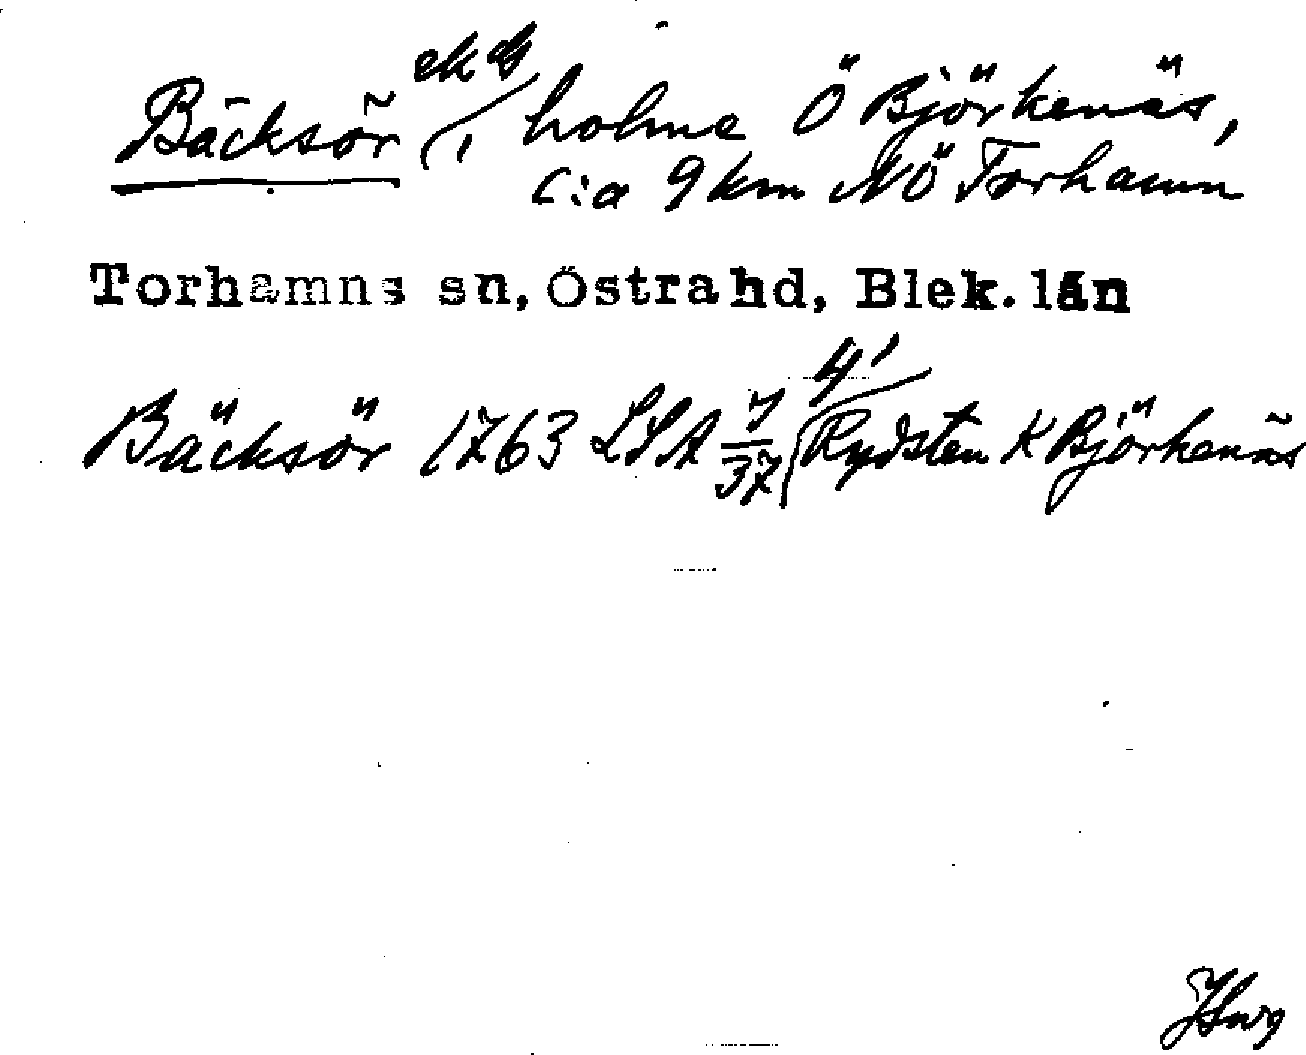 Bäcksör, holme Ö Björkenäs,
c:a 9 km NÖ Torhamn
Torhamns sn, Östra hd, Blek. län
Bäcksör 1763 LSA 7/37 Rydsten K Björkenäs